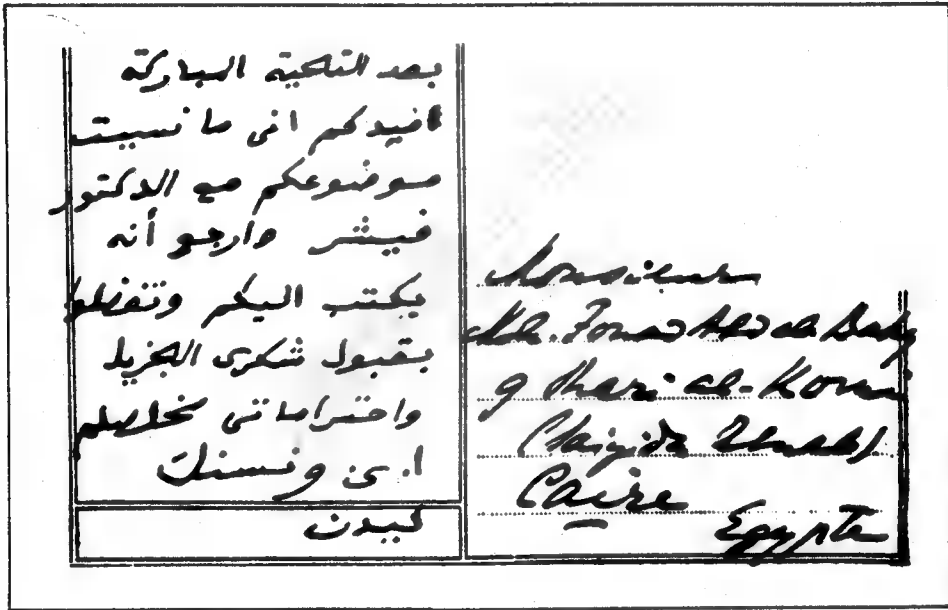 بعد التحية المباركة
افيدكم انى ما نسيت
موضوعكم مع الدكتور
فيشر وارجو أنه
يكتب اليكم وتفضلوا
بقبول شكرى الجزيل
واحتراماتى مخلصكم
ا. ى ونسنك
ليدن
Monsieur
Moh. Fouad Abd al Baky
9 Shari al-
(Saiyida Zeinab)
Caire
Egypte